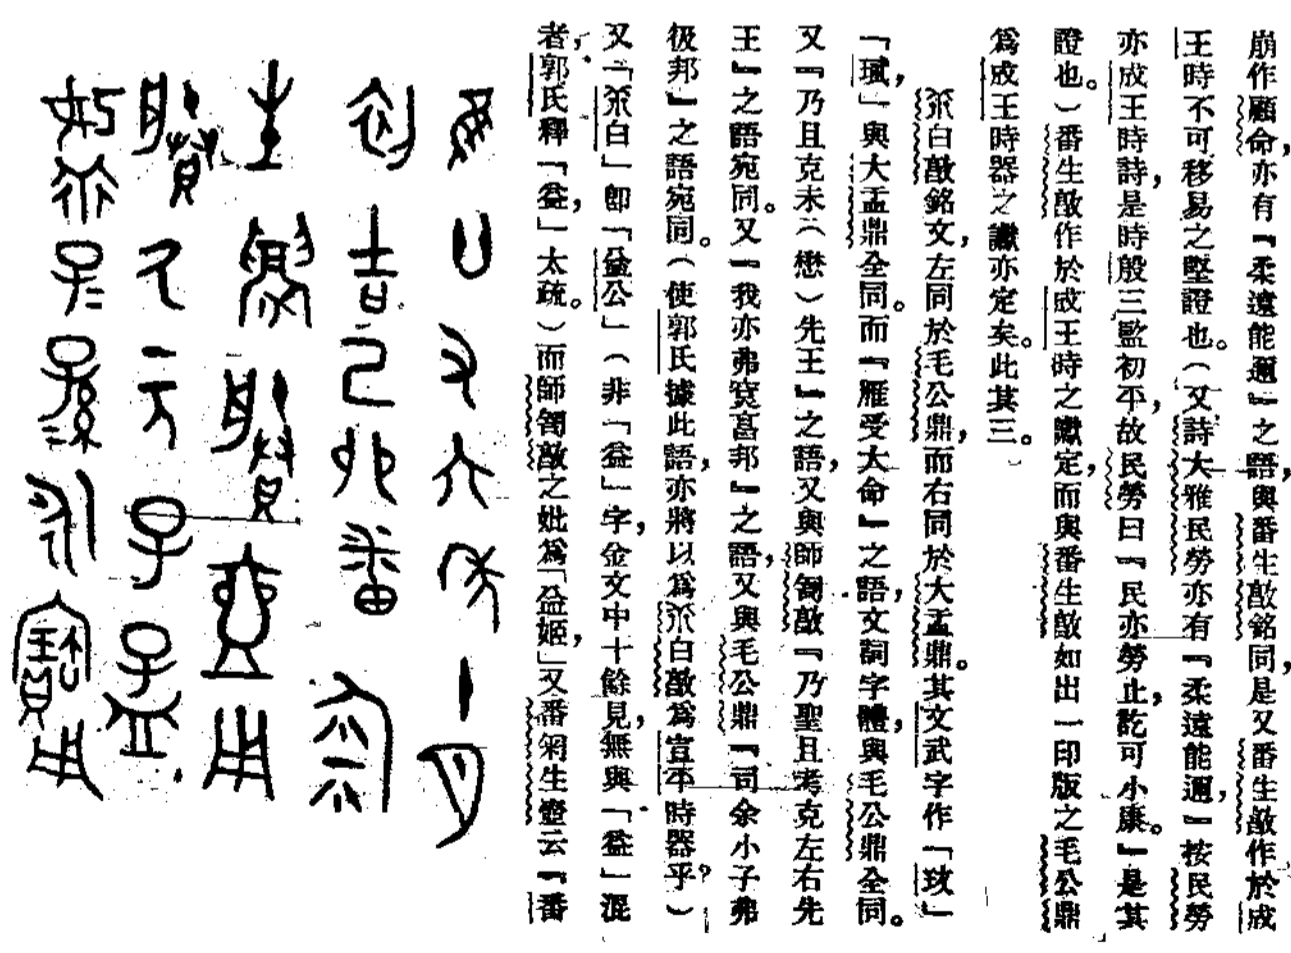 崩作顧命，亦有『柔遠能邇』之語，與番生𣪘銘同，是又番生𣪘作於成
王時不可移易之堅證也。（又詩大雅民勞亦有『柔遠能邇，』按民勞
亦成王時詩，是時殷三監初平，故民勞曰『民亦勞止，訖可小康。』是其
證也。）番生𣪘作於成王時之讞定，而與番生𣪘如出一印版之毛公鼎
爲成王時器之讞亦定矣。此其三。
白𣪘銘文，左同於毛公鼎，而右同於大盂鼎。其文武字作「玟」
「珷，」與大盂鼎全同。而『雁受大命』之語，文詞字體，與毛公鼎全同。
又『乃且克（懋）先王』之語，又與師𣪘『乃聖且考克左右先
王』之語宛同。又『我亦弗邦』之語，又與毛公鼎『司余小子弗
彶邦』之語宛同。（使郭氏據此語，亦將以爲白𣪘爲宣平時器乎？）
又「白」即「益公」（非「益」字，金文中十餘見，無與「益」混
者，郭氏釋「益，」太疏。）而師𣪘之妣爲「益姬，」又番匊生壺云『番
隹廿又六年十月
初吉己卯番匊
生鑄賸壺用
賸乓元子孟
妀乖子子孫孫永寶用